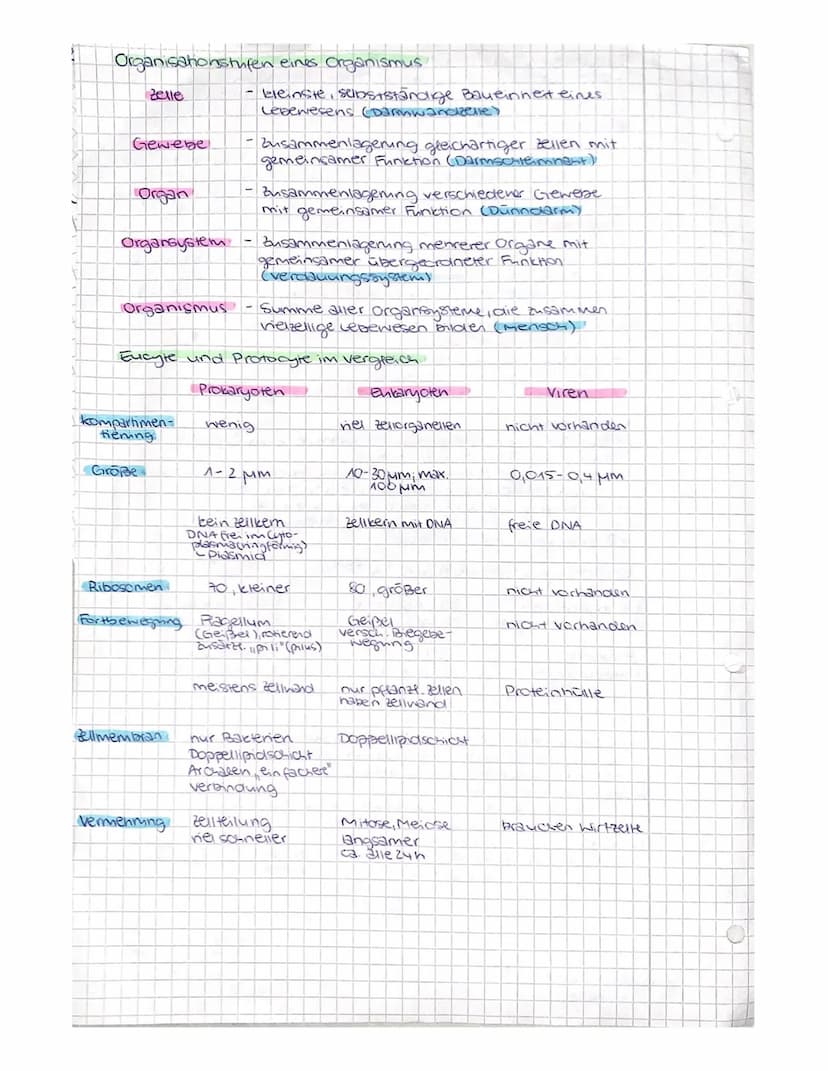 Organisationstufen eines Organismus
Zelle - kleinste, selbstständige Baueinheit eines
Lebewesens (Darmwandzelle)
Gewebe - Zusammenlagerung gleichartiger Zellen mit
gemeinsamer Funktion (Darmschleimhaut)
Organ - Zusammenlagerung verschiedener Gewebe
mit gemeinsamer Funktion (Dünndarm)
Organsystem - Zusammenlagerung mehrerer Organe mit
gemeinsamer übergeordneter Funktion
(Verdauungssystem)
Organismus - Summe aller Organsysteme, die zusammen
vielzellige Lebewesen bilden (Mensch)
Eucyte und Protocyte im Vergleich
Prokaryoten Eukaryoten Viren
Kompartimen- wenig viel Zellorganellen nicht vorhanden
tierung
Größe 1-2 µm 10-30 µm; max. 0,015-0,4 µm
100 µm
kein Zellkern Zellkern mit DNA freie DNA
DNA frei im Cyto-
plasma (ringförmig)
Plasmid
Ribosomen 70, kleiner 80, größer nicht vorhanden
Fortbewegung Flagellum Geißel nicht vorhanden
(Geißel), rotierend versch. Biegebe-
zusätzl. „pili" (pilus) wegung
meistens Zellwand nur pflanzl. Zellen Proteinhülle
haben Zellwand
Zellmembran nur Bakterien Doppellipidschicht
Doppellipidschicht
Archaeen „einfachere"
Verbindung
Vermehrung Zellteilung Mitose, Meiose brauchen Wirtzelle
viel schneller langsamer
ca. alle 24h